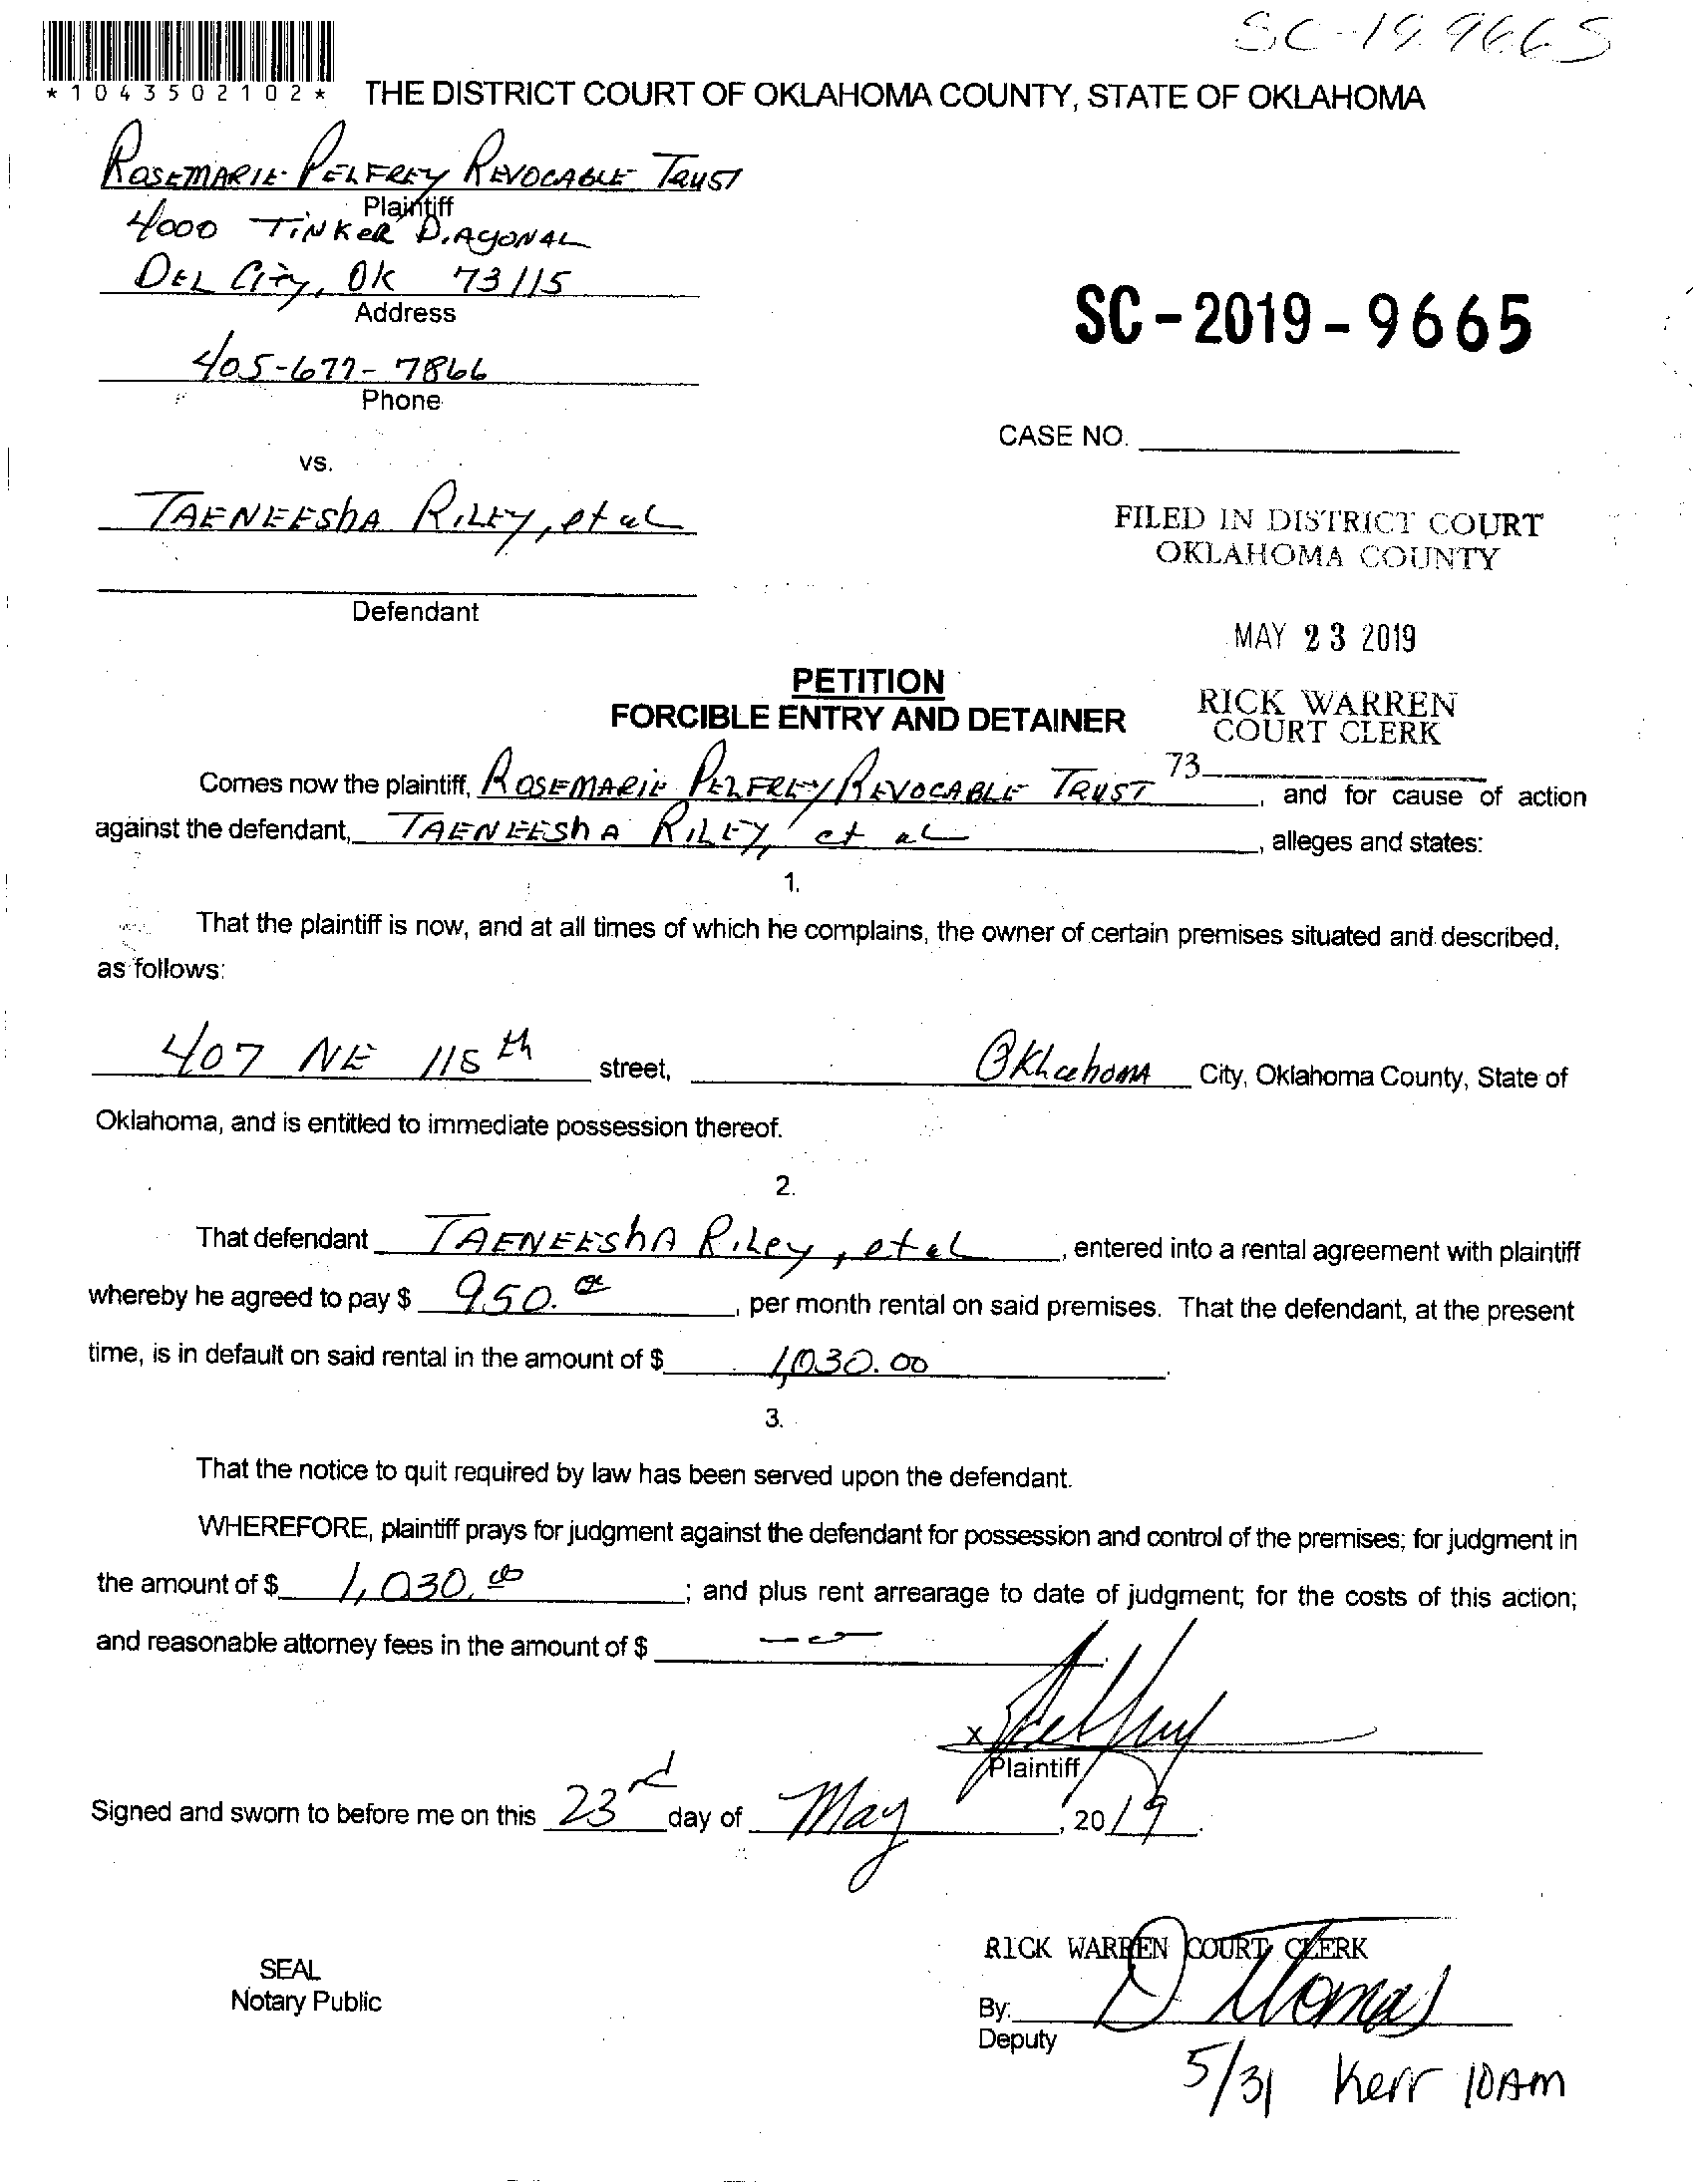 SC-19-9665
*1043502102*
THE DISTRICT COURT OF OKLAHOMA COUNTY, STATE OF OKLAHOMA
ROSEMARIE PELFREY REVOCABLE TRUST
Plaintiff
4000 TINKER DIAGONAL
DEL CITY, OK 73115
Address
SC-2019-9665
405-677-7866
Phone
CASE NO.
vs.
TAENEESHA RILEY, et al
FILED IN DISTRICT COURT
OKLAHOMA COUNTY
Defendant
MAY 23 2019
PETITION
FORCIBLE ENTRY AND DETAINER
RICK WARREN
COURT CLERK
73
Comes now the plaintiff, ROSEMARIE PELFREY REVOCABLE TRUST, and for cause of action
against the defendant, TAENEESHA RILEY, et al, alleges and states:
1.
That the plaintiff is now, and at all times of which he complains, the owner of certain premises situated and described,
as follows:
407 NE 115th street, Oklahoma City, Oklahoma County, State of
Oklahoma, and is entitled to immediate possession thereof.
2.
That defendant TAENEESHA Riley, et al, entered into a rental agreement with plaintiff
whereby he agreed to pay $ 950.00, per month rental on said premises. That the defendant, at the present
time, is in default on said rental in the amount of $ 1,030.00.
3.
That the notice to quit required by law has been served upon the defendant.
WHEREFORE, plaintiff prays for judgment against the defendant for possession and control of the premises; for judgment in
the amount of $ 1,030.00; and plus rent arrearage to date of judgment; for the costs of this action;
and reasonable attorney fees in the amount of $ -0-
x
Plaintiff
Signed and sworn to before me on this 23rd day of May, 2019.
RICK WARREN COURT CLERK
SEAL
Notary Public
By: D Thomas
Deputy
5/31 Kerr 10AM